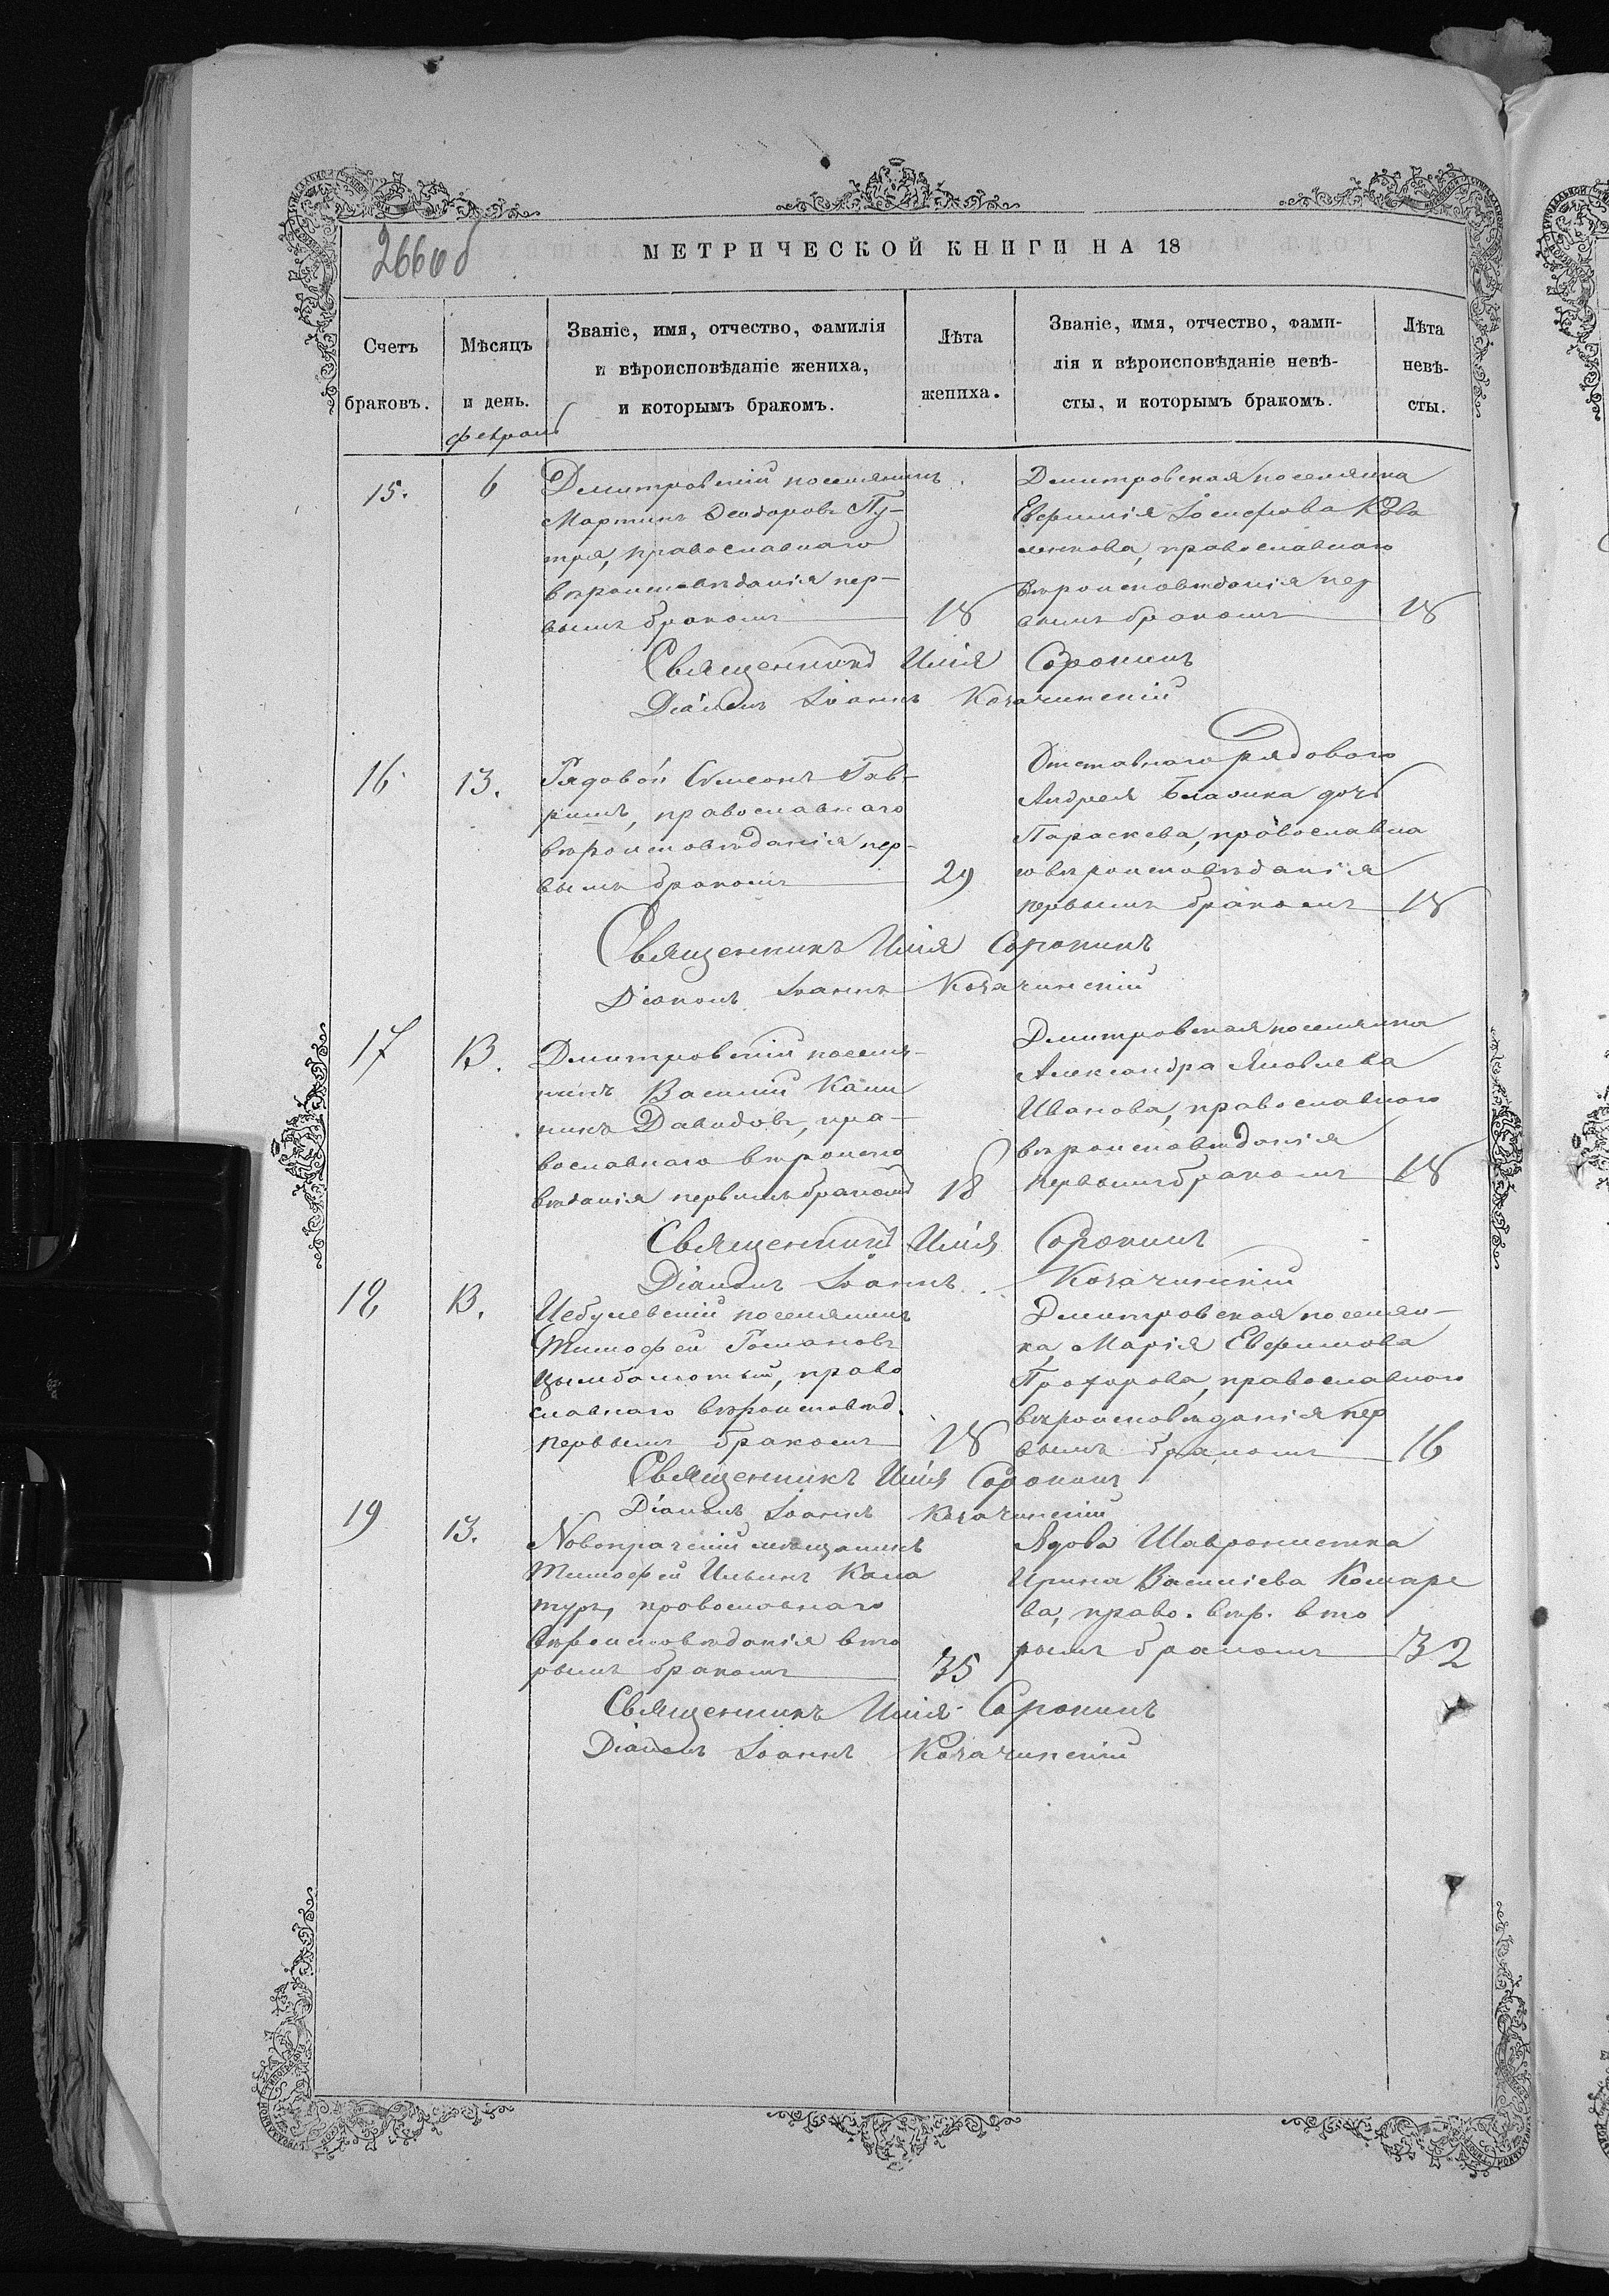 266об
МЕТРИЧЕСКОЙ КНИГИ НА 18
Счетъ браковъ.
Мѣсяцъ и день.
Званіе, имя, отчество, фамилія
и вѣроисповѣданіе жениха,
и которымъ бракомъ.
Лѣта жениха.
Званіе, имя, отчество, фами-
лія и вѣроисповѣданіе невѣ-
сты, и которымъ бракомъ.
Лѣта невѣ-
сты.
Февраль
15.
6
Дмитровскій поселянинъ
Мартинъ Ѳеодоровъ Пу-
тря, православнаго
вѣроисповѣданія пер-
вымъ бракомъ
18
Дмитровская поселянка
Евфимія Іосифова Кова
ленкова, православнаго
вѣроисповѣданія пер
вымъ бракомъ
18
Священникъ Илія Сорокинъ
Діаконъ Іоаннъ Козачинскій
16
13.
Рядовой Симеонъ Гав-
рилъ, православнаго
вѣроисповѣданія пер-
вымъ бракомъ
29
Отставнаго рядоваго
Андрея дочь
Параскева, православна
го вѣроисповѣданія
первымъ бракомъ
18
Священникъ Илія Сорокинъ
Діаконъ Іоаннъ Козачинскій
17
13.
Дмитровскій поселя-
нинъ Василій Кали
никъ Давидовъ, пра-
вославнаго вѣроиспо
вѣданія первымъ бракомъ
18
Дмитровская поселянка
Александра Яковлева
Иванова, православнаго
вѣроисповѣданія
первымъ бракомъ
18
Священникъ Илія Сорокинъ
Діаконъ Іоаннъ Козачинскій
18
13.
Цебулевскій поселянинъ
Тимофей Романовъ
Цымбалютый, право
славнаго вѣроисповѣд.
первымъ бракомъ
18
Дмитровская поселян-
ка Марія Евфимова
Прохорова, православнаго
вѣроисповѣданія пер
вымъ бракомъ
16
Священникъ Илія Сорокинъ
Діаконъ Іоаннъ Козачинскій
19
13.
Новопражскій мѣщанинъ
Тимофей Ильинъ Кала
туръ, православнаго
вѣроисповѣданія вто
рымъ бракомъ
35
Вдова
Ирина Василіева Комаре
ва, право. вѣр. вто
рымъ бракомъ
32
Священникъ Илія Сорокинъ
Діаконъ Іоаннъ Козачинскій